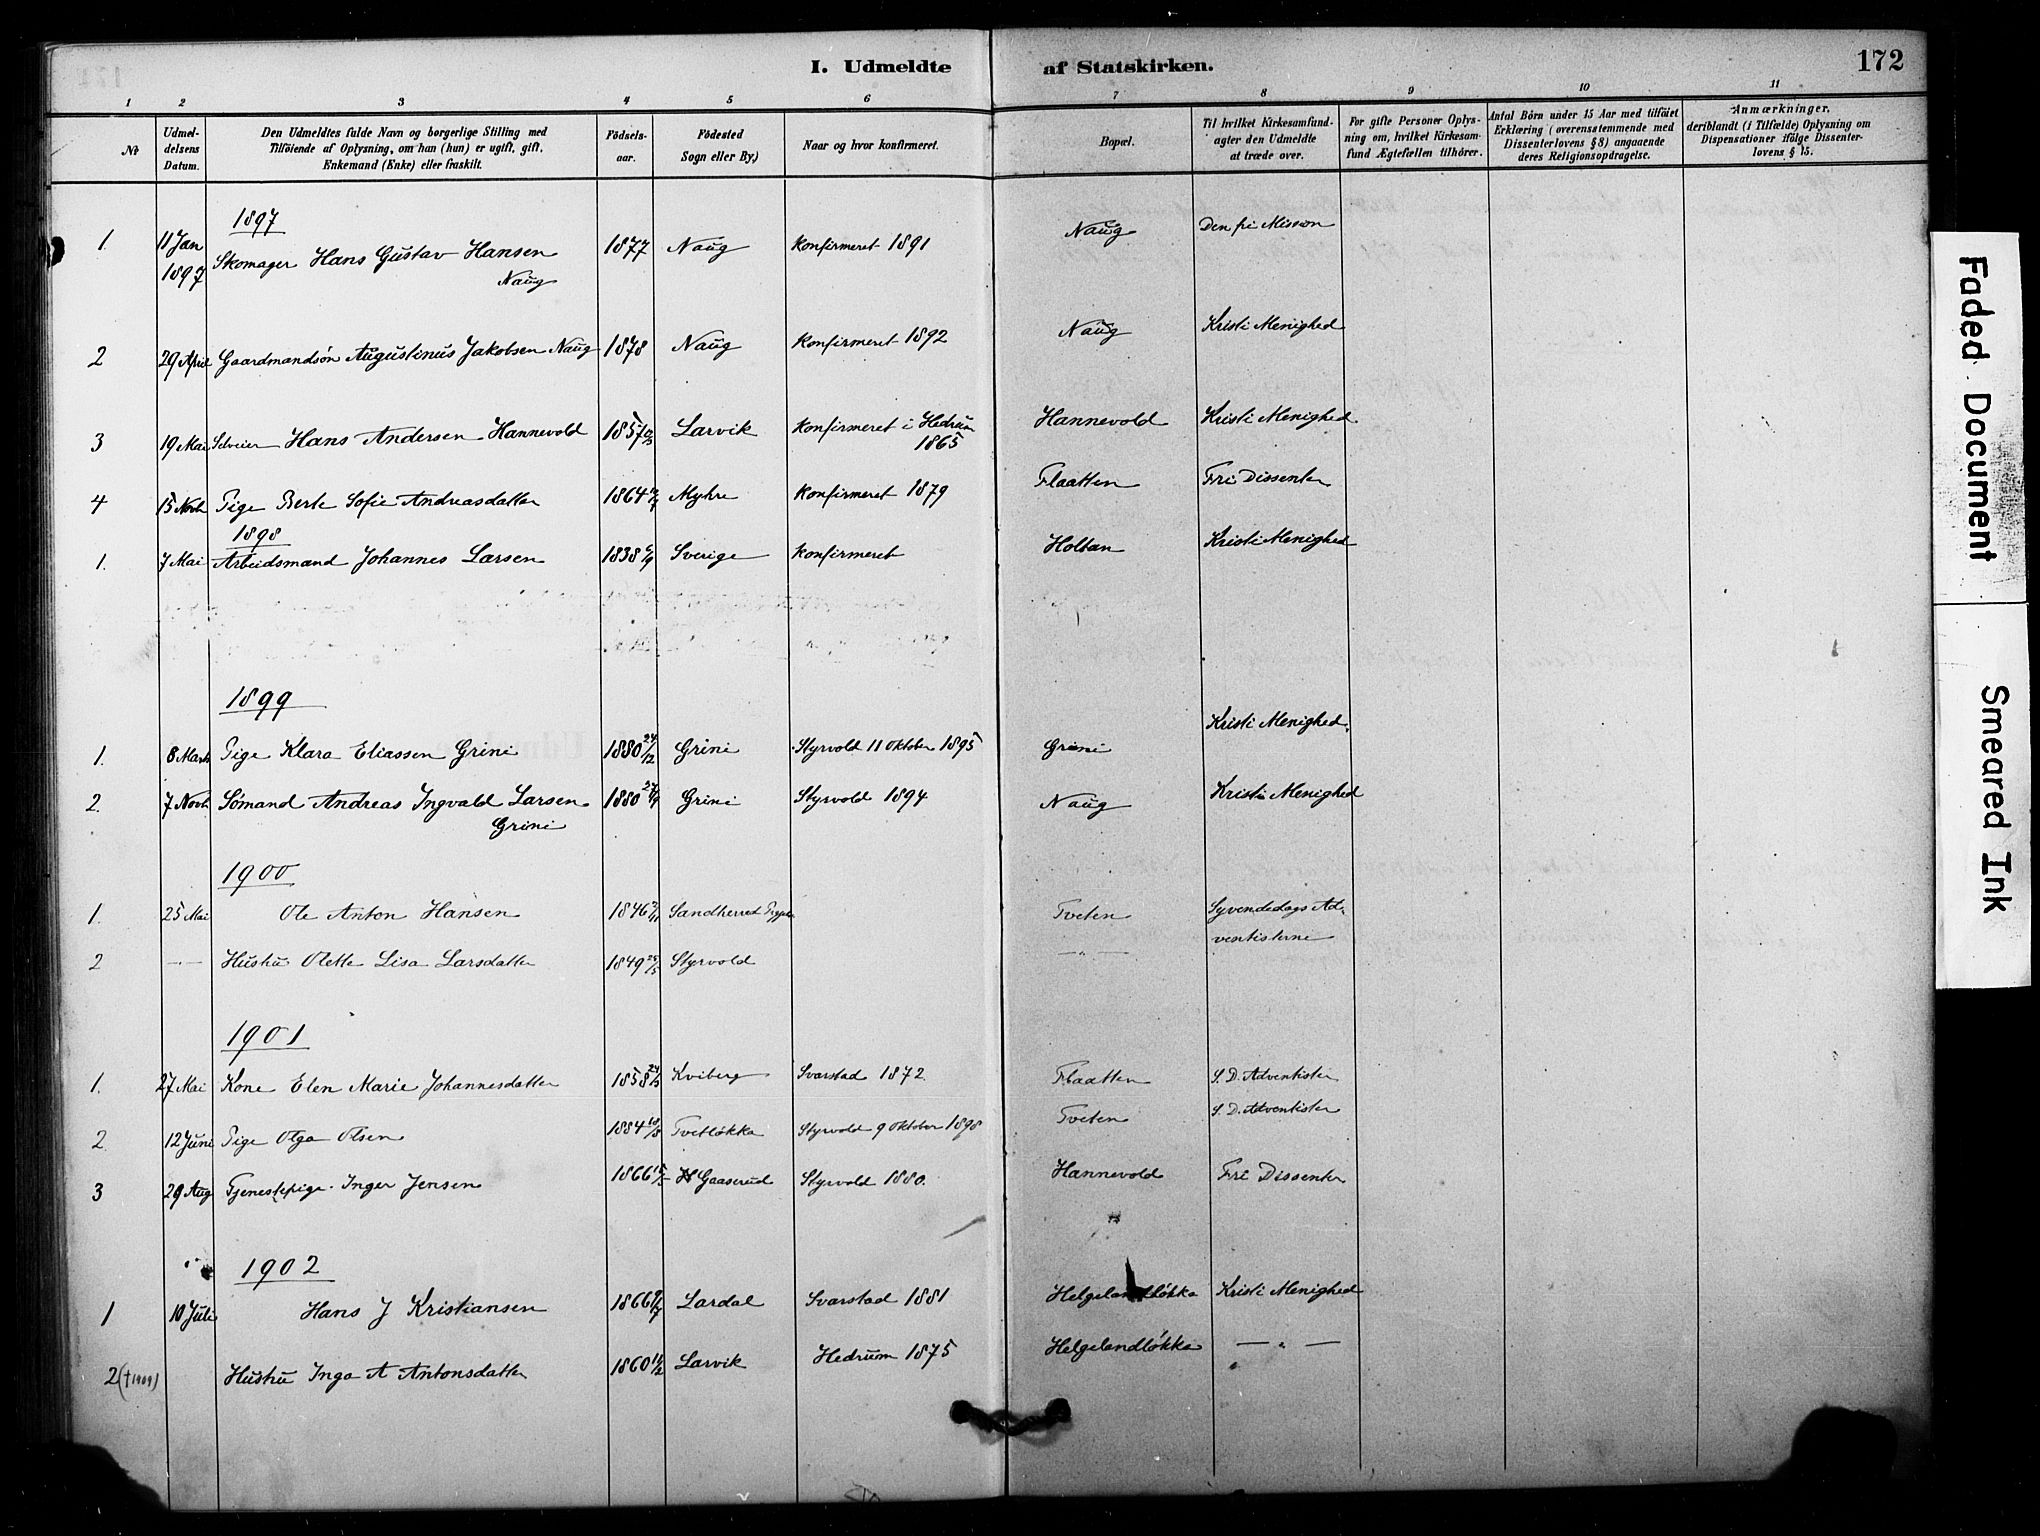 I. Udmeldte af Statskirken.
172
1 2 3 4 5 6 7 8 9 10 11
No
Udmel-
delsens
Datum.
Den Udmeldtes fulde Navn og borgerlige Stilling med
Tilföiende af Oplysning, om han (hun) er ugift, gift,
Enkemand (Enke) eller fraskilt.
Födsels-
aar.
Födested
Sogn eller By.)
Naar og hvor konfirmeret.
Bopæl.
Til hvilket Kirkesamfund-
agter den Udmeldte
at træde over.
For gifte Personer Oplys-
ning om, hvilket Kirkesam-
fund Ægtefællen tilhörer.
Antal Börn under 15 Aar med tilföiet
Erklæring (overensstemmende med
Dissenterlovens § 8) angaaende
deres Religionsopdragelse.
Anmærkninger,
deriblandt (i Tilfælde) Oplysning om
Dispensationer ifölge Dissenter-
lovens § 15.
1897
1. 11 Jan 1897 Skomager Hans Gustav Hansen 1877 Naug Konfirmeret 1891 Naug Den fri Mission
Naug
2 29 April Gaardmandsön Augustinus Jakobsen Naug 1878 Naug Konfirmeret 1892 Naug Kristi Menighed
3 19 Mai Selveier Hans Andersen Hannevold 1857 Larvik Konfirmeret i Hedrum Hannevold Kristi Menighed
1865
4 15 Novb Pige Berte Sofie Andreasdatter 1864 Myhre Konfirmeret 1879 Flaatten Fri Dissenter
1898
1. 7 Mai Arbeidsmand Johannes Larsen 1838 Sverige Konfirmeret Holtan Kristi Menighed
1899
1. 8 Marts Pige Klara Eliassen Grini 1880 24/12 Grini Styrvold 11 Oktober 1895 Grini Kristi Menighed.
2. 7 Novb. Sömand Andreas Ingvald Larsen 1880 Grini Styrvold 1894 Naug Kristi Menighed
Grini
1900
1. 25 Mai Ole Anton Hansen 1846 Sandherred Tveten Syvendedags Ad-
ventisterne
2 — Hustru Olette Lisa Larsdatter 1849 25/5 Styrvold — „ —
1901
1. 27 Mai Kone Elen Marie Johannesdatter 1858 Kviberg Svarstad 1872 Flaatten S. D. Adventister
2. 12 Juni Pige Olga Olsen 1884 Tvetløkka Styrvold 9 Oktober 1898 Tveten S. D. Adventister
3 29 Aug Tjenestepige Inger Jensen 1866 Gaaserud Styrvold 1880. Hannevold Fri Dissenter
1902
1 10 Juli Hans J Kristiansen 1866 Lardal Svarstad 1881 Helgelandløkka Kristi Menighed
2 († 1909) Hustru Inga A Antonsdatter 1860 Larvik Hedrum 1875 Helgelandløkka — „ —
Faded Document
Smeared Ink